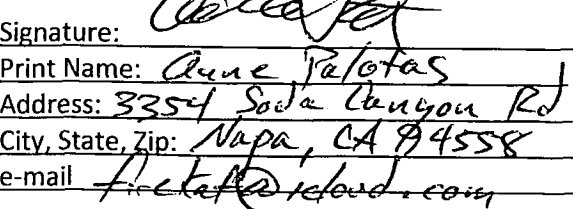 Signature:
Print Name: Anne Palotas
Address: 3354 Soda Canyon Rd
City, State, Zip: Napa, CA 94558
e-mail